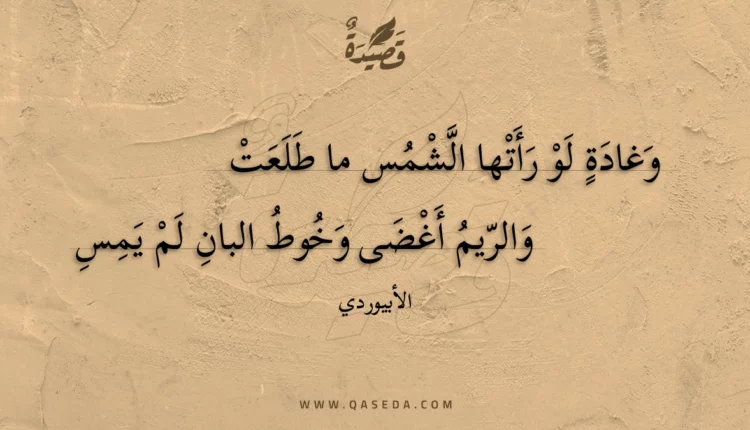 قَصِيدَةٌ
وَغادَةٍ لَوْ رَأَتْها الَّشْمُس ما طَلَعَتْ
وَالرّيمُ أَغْضَى وَخُوطُ البانِ لَمْ يَمِسِ
الأبيوردي
WWW.QASEDA.COM